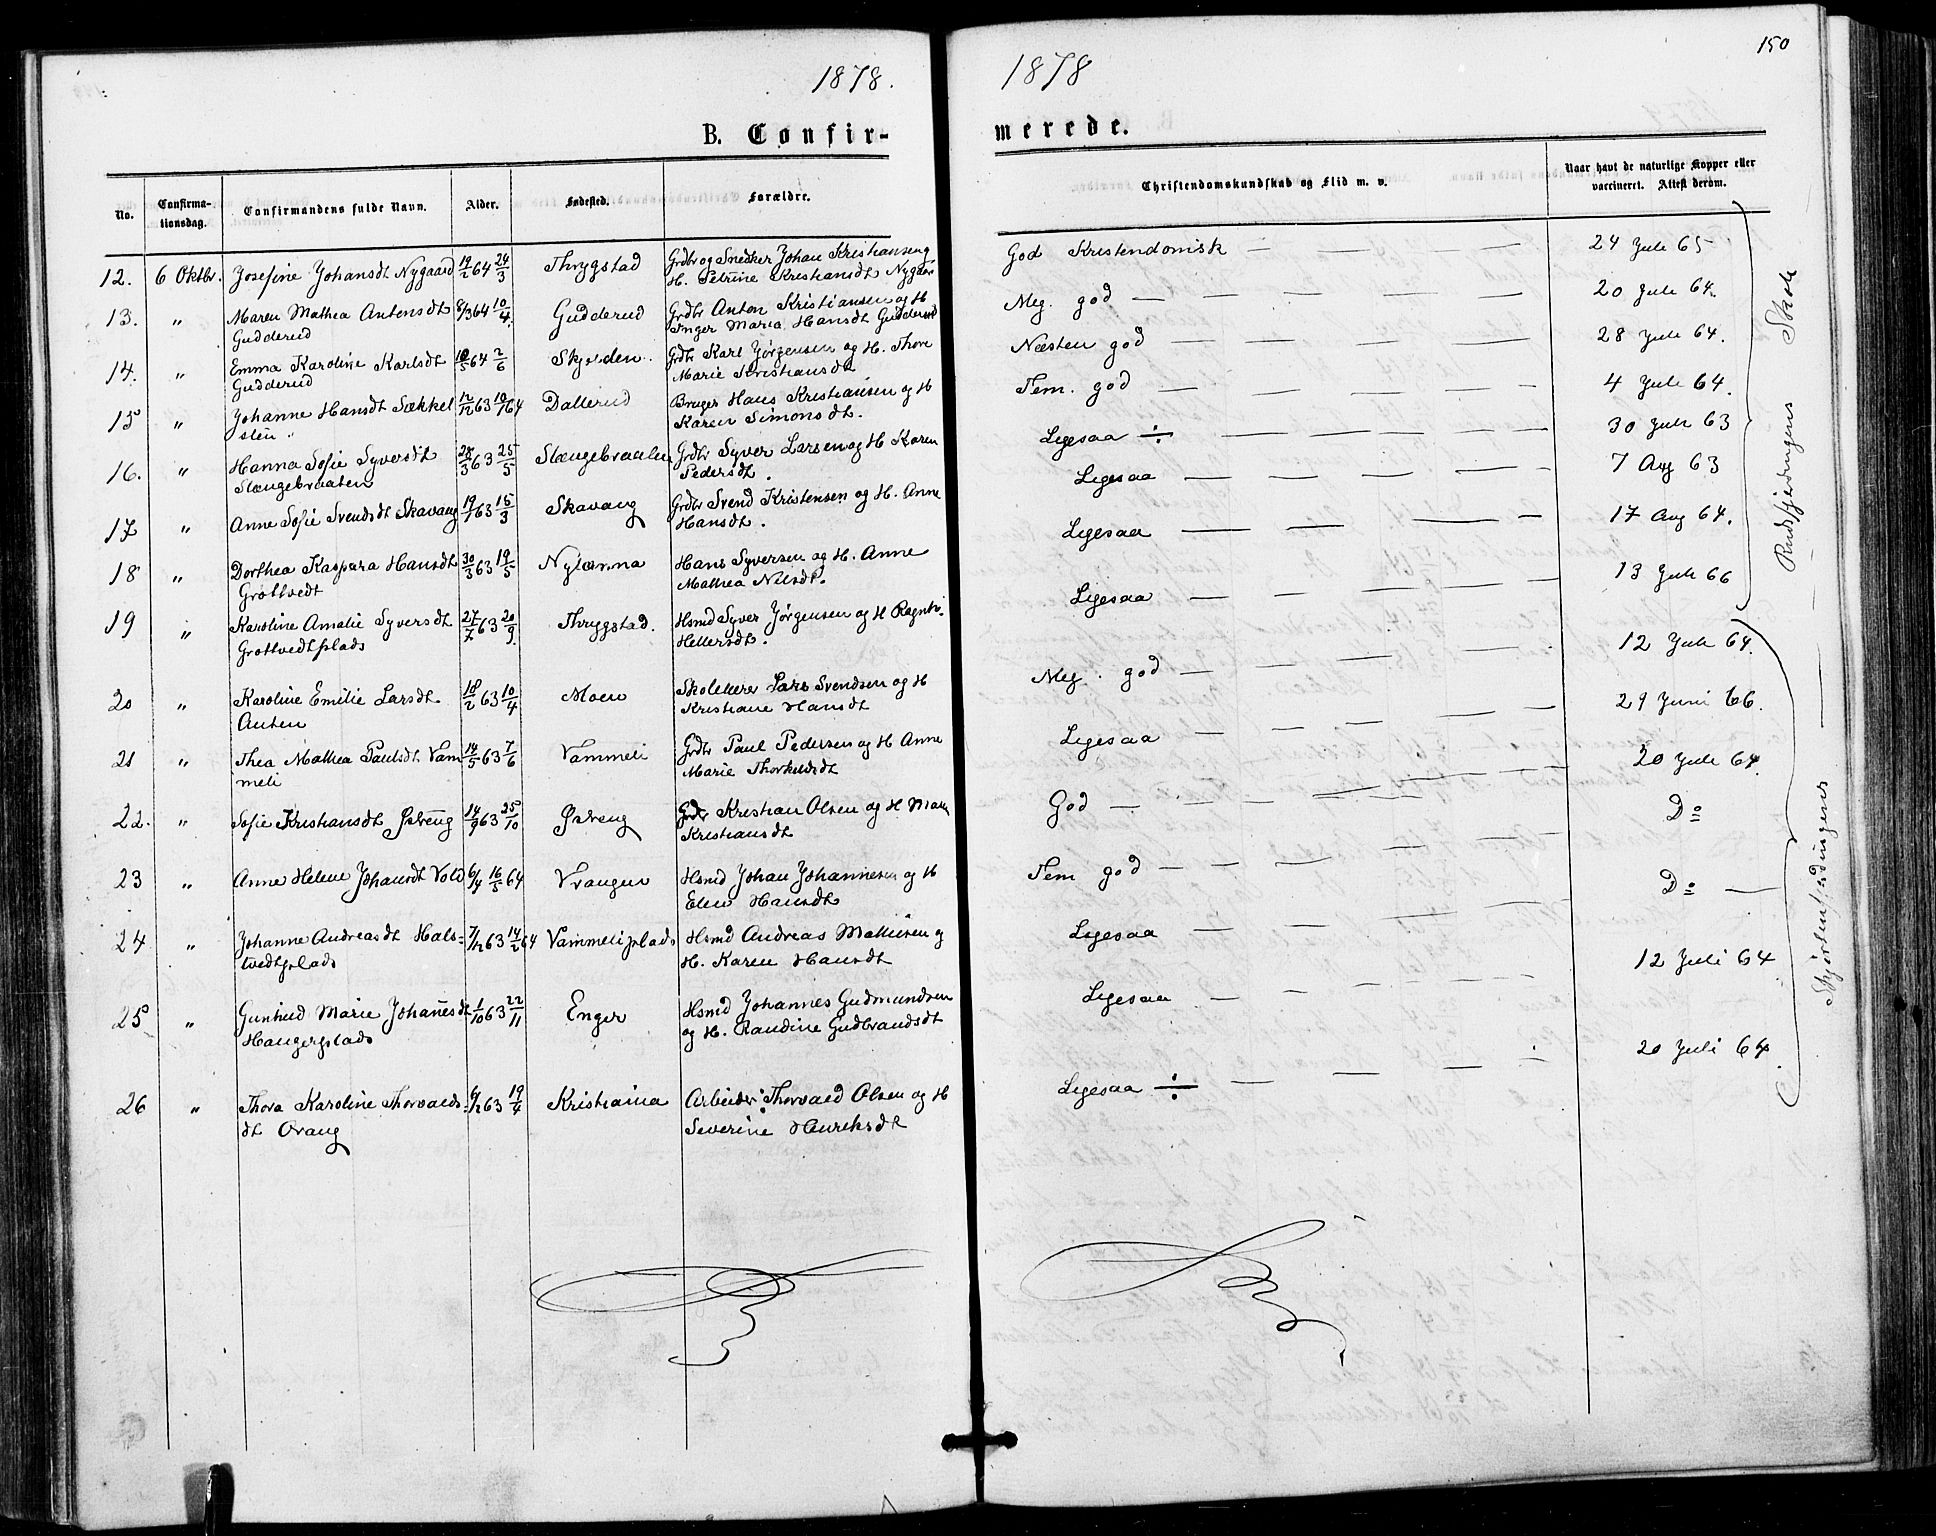 1878.
B. Confir-
No.
Confirma-
tionsdag.
Confirmandens fulde Navn.
Alder.
Fødested.
Forældre.
12. 6 Oktbr. Josefine Johansdt Nygaard 14/2 64 24/3 Thrygstad Grdbr og Snedker Johan Kristiansen og
H. Petrine Kristiansdt Nygaard
13. " Maren Mathea Antonsdt 8/3 64 10/4. Gudderud Grdbr Anton Kristiansen og H
Gudderud Inger Maria Hansdt Gudderud
14. " Emma Karoline Karlsdt 10/5 64 2/6 Skjolden. Grdbr Karl Jørgensen og H. Thore
Gudderud Marie Kristiansdt
15 " Johanne Hansdt Sækkel 12/12 63 10/1 64 Dallerud Bruger Hans Kristiansen og H
sten " Karen Simonsdt.
16. " Hanna Sofie Syversdt 28/3 63 25/5 Slængebraaten Grdbr Syver Larsen og H Karen
Slængebraaten Pedersdt.
17 " Anne Sofie Svendsdt Skavang 19/1 63 15/3 Skavang Grdbr Svend Kristensen og H. Anne
Hansdt.
18 " Dorthea Kaspara Hansdt 30/3 63 19/5 Nylænna Hans Syversen og H. Anne
Grøttvedt Mathea Nilsdt.
19 " Karoline Amalie Syversdt 27/7 63 20/9 Thrygstad. Hsmd Syver Jørgensen og H Ragnh.
Grøttvedtplads Hellersdt.
20 " Karoline Emilie Larsdt 18/2 63 10/4 Moen Skolelærer Lars Svendsen og H
Anten Kristiane Hansdt
21 " Thea Mathea Paulsdt Vam 14/5 63 7/6 Vammeli Grdbr Paul Pedersen og H Anne
meli Marie Thorkeldsdt
22. " Sofie Kristiansdt Østeng 14/9 63 25/10 Østeng Grdbr Kristian Olsen og H Maren
Kristiansdt
23 " Anne Helene Johansdt Vold 6/4 16/5 64 Vrangen Hsmd Johan Johannesen og H
Elen Hansdt
24 " Johanne Andreasdt Hals= 7/12 63 14/2 64 Vammeliplads Hsmd Andreas Mathisen og
tvedtplads H. Karen Hansdt
25 " Gunhild Marie Johanesdt 1/10 63 22/11 Enger Hsmd Johannes Gudmundsen
Haugerplads og H. Randine Gudbrandsdt
26 " Thora Karoline Thorvalds= 6/2 63 19/4 Kristiania Arbeider: Thorvald Olsen og H
dt Orang Severine Henriksdt
150
1878
merede.
Christendomskundskab og Flid m. v.
Naar havt de naturlige Kopper eller
vaccineret. Attest derom.
God Kristendomsk — — — 24 Juli 65
Meg. god — — — — 20 Juli 64.
Næsten god — — — — 28 Juli 64.
Tem. god — — — — 4 Juli 64.
Ligesaa ÷ — — — — 30 Juli 63
Ligesaa — — — — 7 Aug 63
Ligesaa — — — — 17 Aug 64.
Ligesaa — — — — 13 Juli 66
Rudsfjerdingens Skole
Meg. god — — — — 12 Juli 64.
Ligesaa — — — — 29 Juni 66.
God — — — — 20 Juli 64.
Tem god — — — — Do
Ligesaa — — — — Do —
Ligesaa — — — — 12 Juli 64
Ligesaa ÷ — — — — 20 Juli 64.